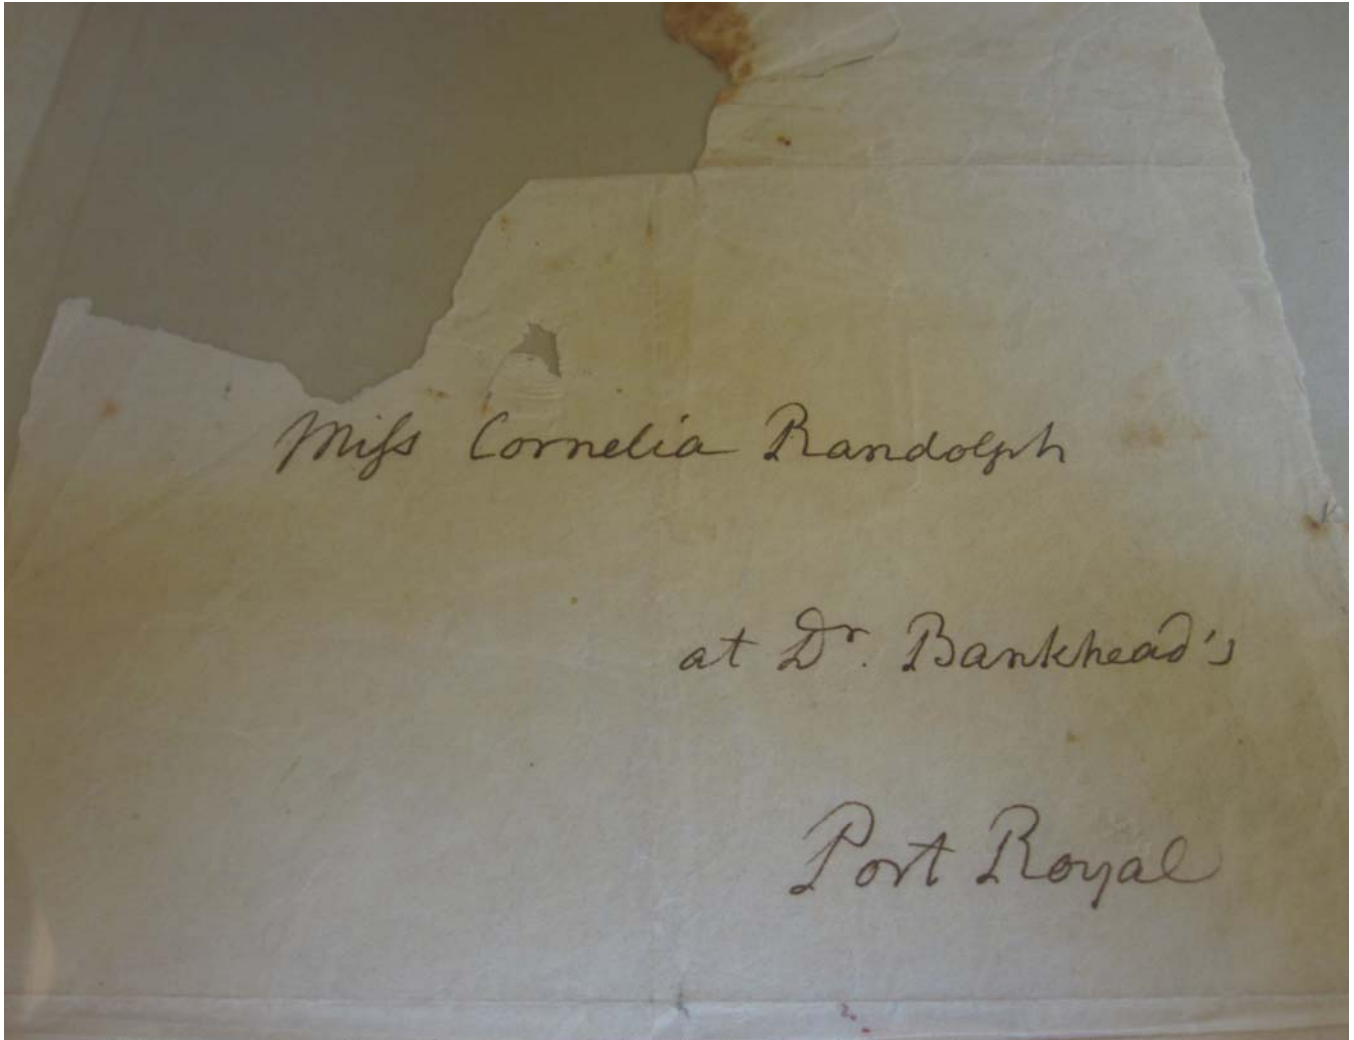 Miſs Cornelia Randolph
at Dr. Bankhead's
Port Royal